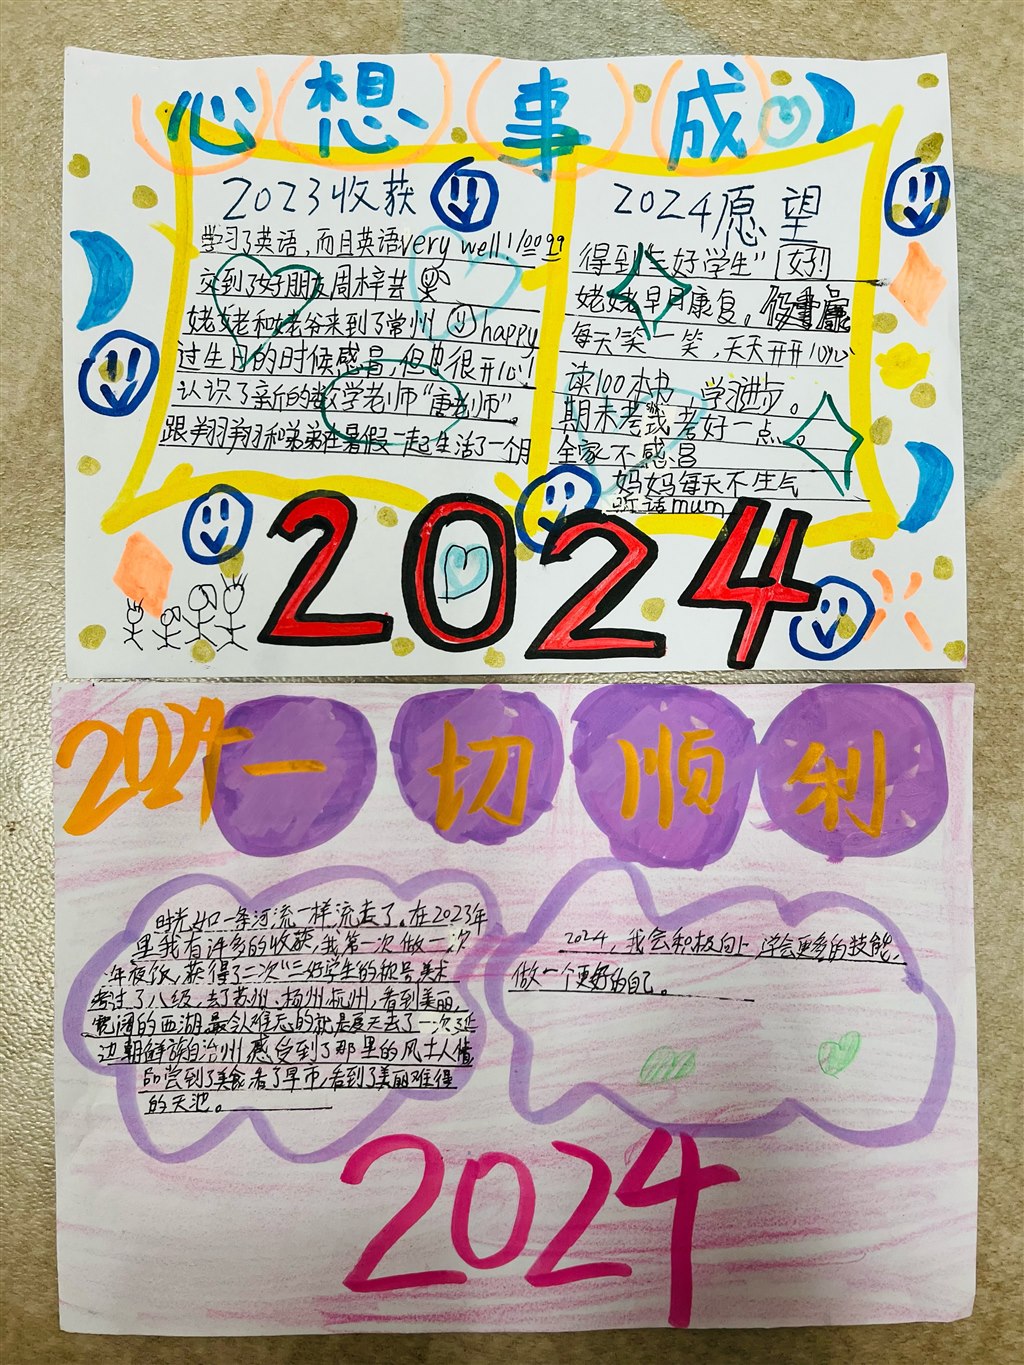 心想事成
2023收获
学习了英语，而且英语very well!
交到了好朋友周梓芸
姥姥和姥爷来到了常州 happy
过生日的时候感冒，但也很开心！
认识了新的数学老师“唐老师”。
跟翔翔和弟弟在暑假一起生活了一个月
2024愿望
得到“三好学生” 好!
姥姥早日康复。
每天笑一笑，天天开开心心
读100本书 学习进步。
期末考试考好一点。
全家不感冒
妈妈每天不生气
mum
2024
2024 一切顺利
时光如一条河流一样流走了。在2023年
里我有许多的收获，我第一次做一次
年夜饭，获得了二次“三好学生的称号美术
考过了八级，去了苏州、扬州杭州，看到美丽，
宽阔的西湖最令难忘的就是夏天去了一次延
边朝鲜族自治州感受到了那里的风土人情
品尝到了美食看了早市，看到了美丽难得
的天池。
2024，我会积极向上 学会更多的技能，
做一个更好的自己。
2024